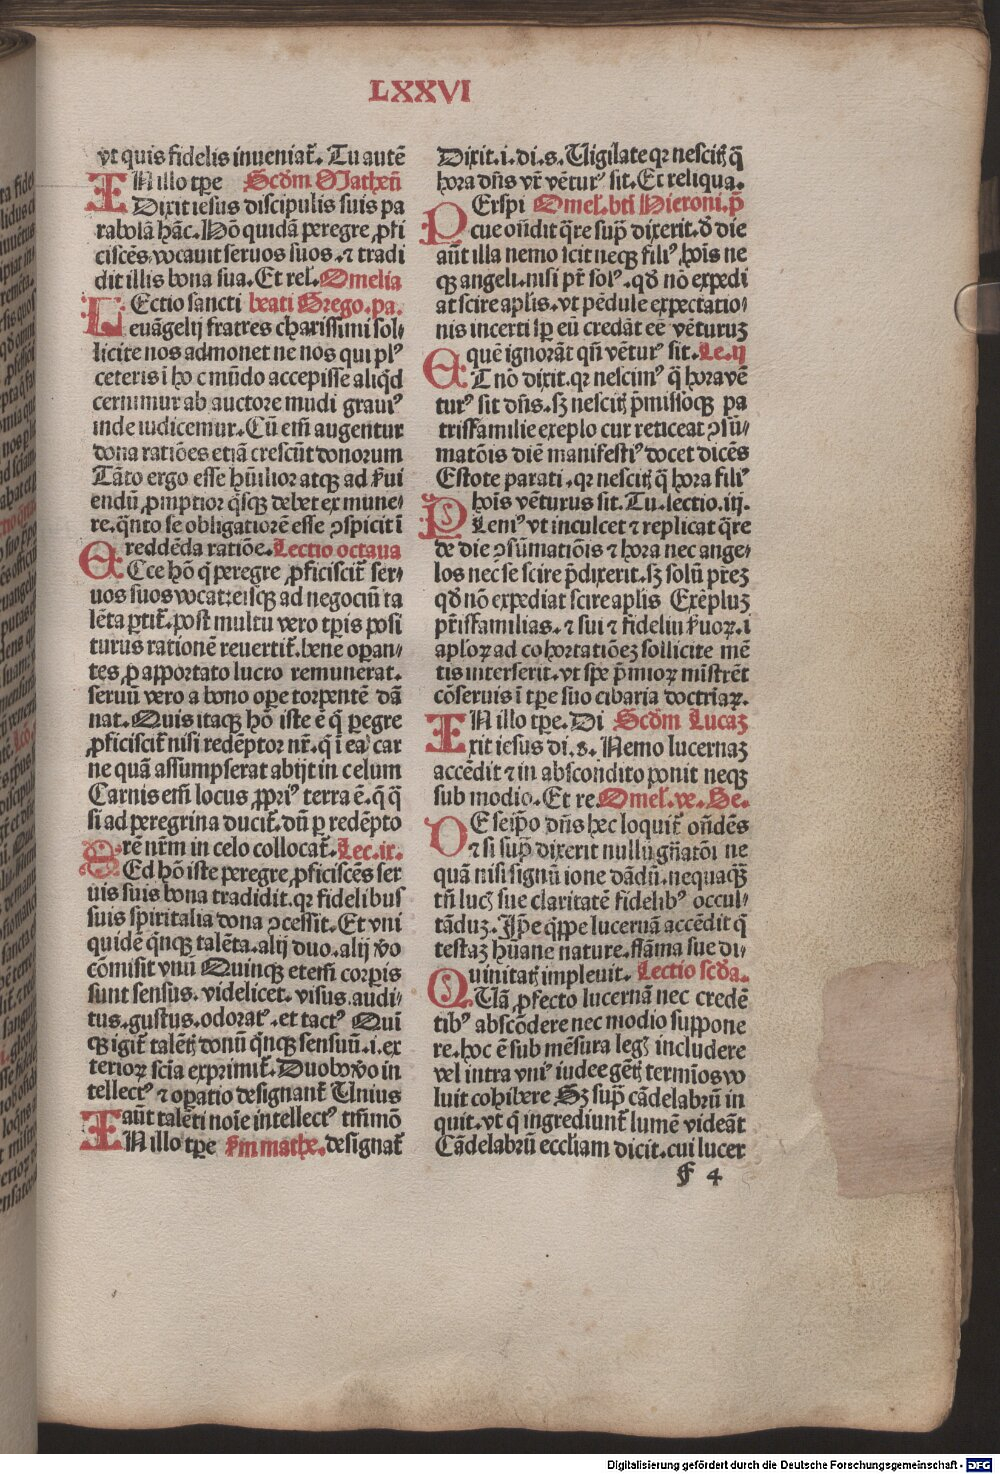 LXXVI
vt quis fidelis inueniat̄. Tu autē
IN illo tp̄e Scd̄m Matheū
Dixit iesus discipulis suis pa
rabolā hāc. Hō quidā peregre ꝓfi
ciscēs, vocauit seruos suos. ⁊ tradi
dit illis bona sua. Et rel̄. Omelia
LEctio sancti beati Grego. pa.
euāgelij fratres charissimi sol-
licite nos admonet ne nos qui plꝰ
ceteris ī hoc mūdo accepisse aliqd̄
cernimur ab auctore mūdi grauiꝰ
inde iudicemur. Cū em̄ augentur
dona ratiōes etiā crescūt donorum
Tāto ergo esse hūilior atqꝫ ad ẜui
endū ꝓmptior q̄sqꝫ debet ex mune-
re. q̄nto se obligatiorē esse ꝯspicit ī
reddēda ratiōe. Lectio octaua
ECce hō q̄ peregre ꝓficiscit̄ ser-
uos suos vocat: eisqꝫ ad negociū ta
lēta ꝑtit̄. post multū vero tp̄is posi
turus rationē reuertit̄. bene oꝑan-
tes ꝓ apportato lucro remunerat.
seruū vero a bono oꝑe torpentē dā
nat. Quis itaqꝫ hō iste ē q̄ ꝑegre
ꝓficiscit̄ nisi redēptor nr̄. q̄ ī ea car
ne quā assumpserat abijt in celum
Carnis em̄ locus ꝓpriꝰ terra ē. q̄ q̄
si ad peregrina ducit̄. dū ꝑ redēpto
rē nr̄m in celo collocat̄. Lec. ix.
SEd hō iste peregre ꝓficiscēs ser
uis suis bona tradidit. qr fidelibus
suis spiritalia dona ꝯcessit. Et vni
quidē q̄nqꝫ talēta. alij duo. alij vo
cōmisit vnū Quinqꝫ etem̄ corꝑis
sunt sensus. videlicet. visus. audi-
tus. gustus. odoratꝰ. et tactꝰ Qui
qꝫ igit̄ talēt̄ donū q̄nqꝫ sensuū. i. ex
terioꝝ scīa exprimit̄. Duobꝰ vo in
tellectꝰ ⁊ oꝑatio designant̄ Unius
aūt talēti noīe intellectꝰ tm̄mō
IN illo tp̄e ẜm mathe. designat̄
Dixit. i. di. s. Uigilate qr nescit̄ q̄
hora dn̄s vr̄ vētur ꝰ sit. Et reliqua.
PErspi Omel̄. bt̄i Hieroni. p̄
cue on̄dit q̄re sup̄ dixerit. d̄ die
aūt illa nemo scit neqꝫ filiꝰ hoīs ne
qꝫ angeli. nisi pr̄ solꝰ. qd̄ nō expedi
at scire aplis. vt pēdule expectatio-
nis incerti sp̄ eū credāt eē vēturuꝫ
quē ignorāt qn̄ vēturꝰ sit. Le. ij
ET nō dixit. qr nescimꝰ q̄ hora vē
turꝰ sit dn̄s. sꝫ nescit̄ p̄missoqꝫ pa
trissfamilie exēplo cur reticeat ꝯsū-
matōis diē manifestiꝰ docet dicēs
Estote parati. qr nescit̄ q̄ hora filiꝰ
hoīs vēturus sit. Tu. lectio. iij.
PLeniꝰ vt inculcet ⁊ replicat q̄re
de die ꝯsūmatiōis ⁊ hora nec ange-
los nec se scire p̄dixerit. sꝫ solū pr̄eꝫ
qd̄ nō expediat scire aplis Exēpluꝫ
pr̄isfamilias. ⁊ sui ⁊ fideliū ẜuoꝝ. i
aploꝝ ad cohortatiōeꝫ sollicite mē
tis interserit. vt spe p̄mioꝝ mīstrēt
cōseruis ī tp̄e suo cibaria doctrīaꝝ.
IN illo tp̄e. Di Scd̄m Lucaꝫ
xit iesus di. s. Nemo lucernaꝫ
accēdit ⁊ in abscondito ponit neqꝫ
sub modio. Et re. Omel̄. ve. Be.
DE seip̄o dn̄s hec loquit̄ on̄dēs
⁊ si sup̄ dixerit nullū gn̄atōi ne
quā nisi signū ione dādū. nequaqꝫ
tn̄ lucꝭ sue claritatē fidelibꝰ occul-
tāduꝫ. Ip̄e q̄ppe lucernā accēdit q̄
testaꝫ hūane nature. flāma sue di-
uinitatꝭ impleuit. Lectio scd̄a.
QUā ꝓfecto lucernā nec credē
tibꝰ abscōdere nec modio suppone
re. hoc ē sub mēsura legꝭ includere
vel intra vniꝰ iudee gētꝭ termīos vo
luit cohibere Sꝫ sup̄ cādelabrū in
quit. vt q̄ ingrediunt̄ lumē videāt
Cādelabrū eccliam dicit. cui lucer
f 4
Digitalisierung gefördert durch die Deutsche Forschungsgemeinschaft - DFG